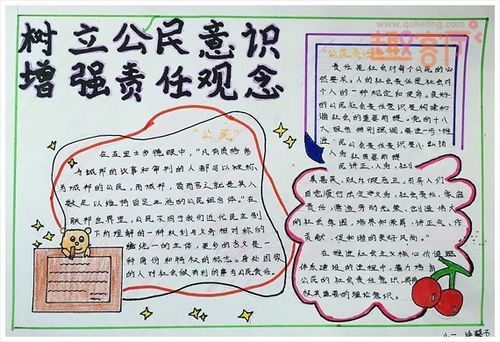 www.quketing.com
趣客厅
树立公民意识
增强责任观念
"公民"
在亚里士多德眼中，"凡有资格参
与城邦的议事和审判的人都可以被称
为城邦的公民，而城邦，简而言之就是其人
数足以维持自足生活的公民组合体。"在
联邦世界里，公民不同于我们近代民主制
下的理解的一种权利与义务相对称的
统一的主体，更多的含义是一
种身份和特权的标志。
的人对社会做有利的事为公民责任。
"公民责任
责任是社会对每个公民的必
然要求。人的社会责任是社会对
个人的一种规定和使命。良好
的公民社会责任意识是构建和
谐社会的重要前提。党的十八
大报告特别强调，要进一步推进
民公民社会责任意识
人为社会
民讲正
真善美，
自觉履行法定义务，社会责任，家庭
责任，营造劳动光荣、创造伟大
的社会氛围，培养知荣辱，讲正气，作
贡献，促和谐的良好风尚。"
在推进社会主义核心价值观
体系建设的进程中，着力培养
公民的社会责任意识，
极其重要的理论意识。